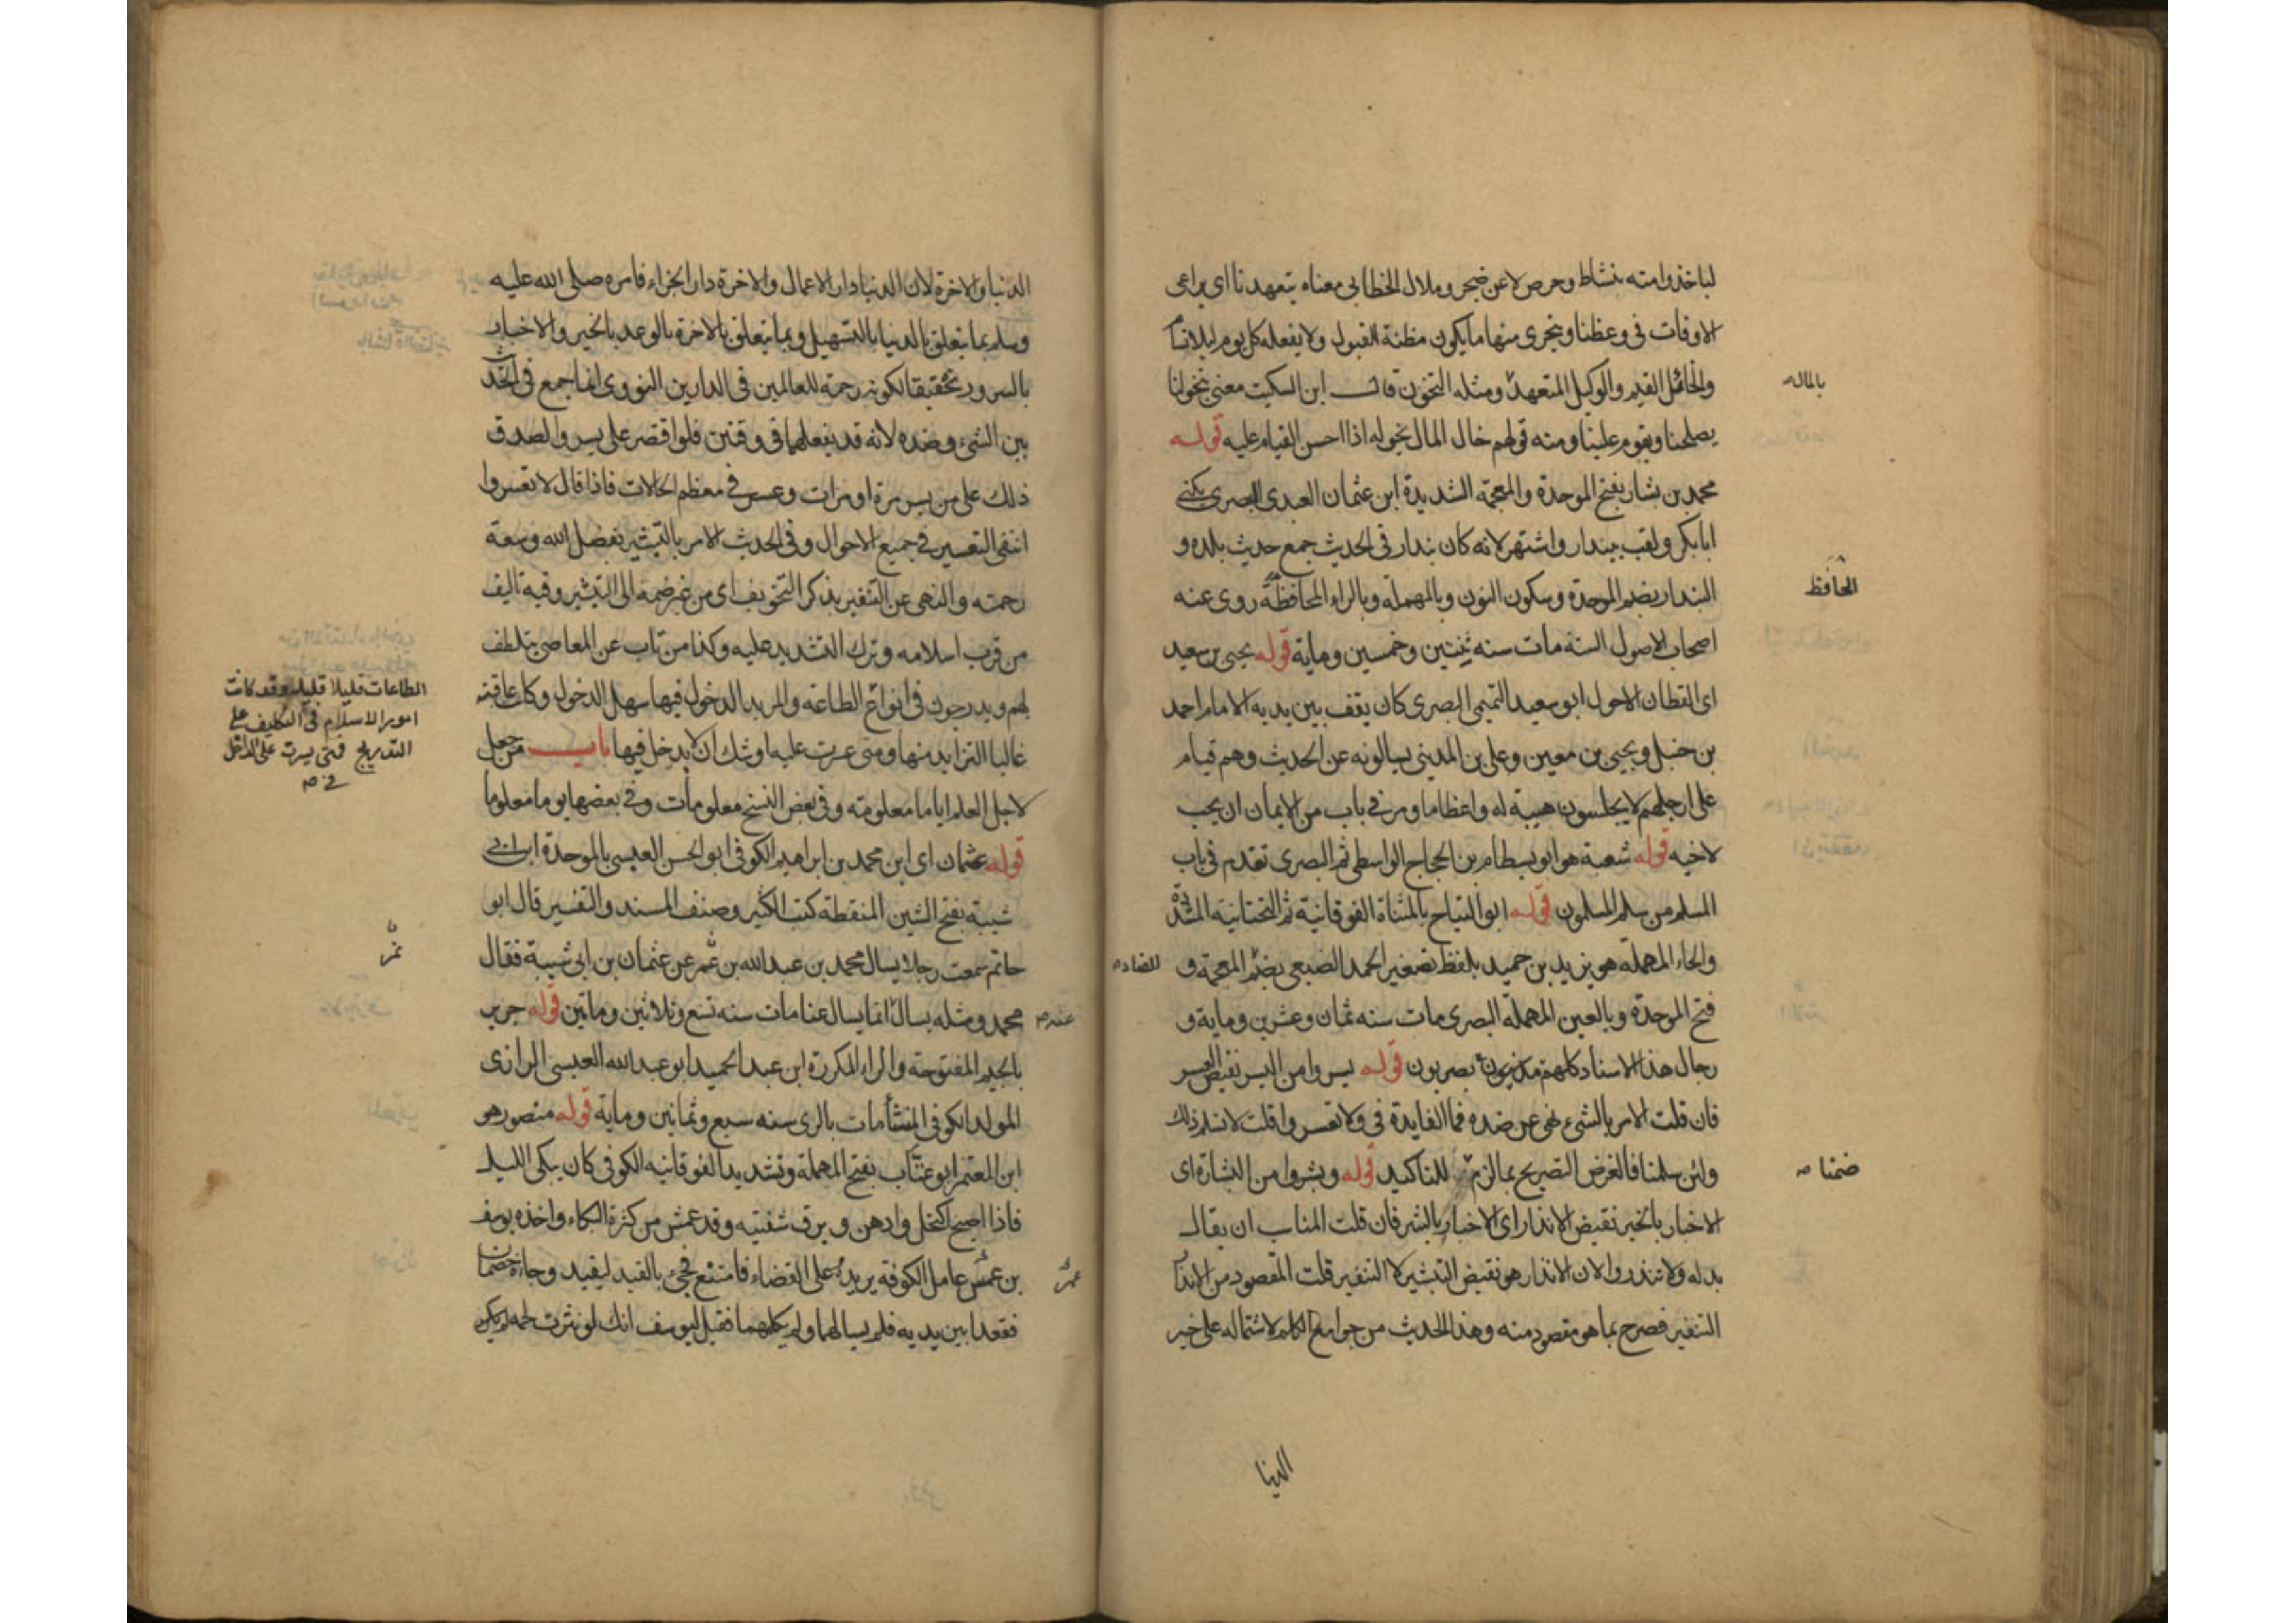 لياخذوا منه بنشاط وحرص لا عن ضجر وملال الخطابى معناه يتعهدنا اى يراعى
الاوقات فى وعظنا ويتحرى منها ما يكون مظنة القبول ولا يفعله كل يوم ليلا نسام
والخائل القيم والوكيل المتعهد ومثله التخون قال ابن السكيت معنى يتخولنا
بالمال صح
يصلحنا ويقوم علينا ومنه قولهم خال المال يخوله اذا احسن القيام عليه قوله
محمد بن بشار بفتح الموحدة والمعجمة الشديدة ابن عثمان العبدى البصرى يكنى
ابا بكر ولقب ببندار واشتهر لانه كان بندار فى الحديث جمع حديث بلده و
البندار بضم الموحدة وسكون النون وبالمهملة وبالراء المحافظة روى عنه
الحافظ
اصحاب الاصول الستة مات سنه ثنتين وخمسين وماية قوله يحيى بن سعيد
اى القطان الاحول ابو سعيد التميمى البصرى كان يقف بين يديه الامام احمد
بن حنبل ويحيى بن معين وعلى بن المدينى يسالونه عن الحديث وهم قيام
على ارجلهم لا يجلسون هيبة له واعظاما ومر فى باب من الايمان ان يحب
لاخيه قوله شعبة هو ابو بسطام بن الحجاج الواسطى ثم البصرى تقدم فى باب
المسلم من سلم المسلمون قوله ابو التياح بالمثناة الفوقانية ثم التحتانية المشددة
والحاء المهملة هو يزيد بن حميد بلفظ تصغير الحمد الضبعى بضم المعجمة و
فتح الموحدة وبالعين المهملة البصرى مات سنه ثمان وعشرين وماية و
رجال هذا الاسناد كلهم بصريون قوله يسروا من اليسر نقيض العسر
فان قلت الامر بالشىء نهى عن ضده فما الفايدة فى ولا تعسروا قلت لا نسلم ذلك
ولئن سلمنا فالغرض التصريح بما لزم للتاكيد قوله وبشروا من البشارة اى
ضمنا صح
الاخبار بالخير نقيض الانذار اى الاخبار بالشر فان قلت المناسب ان يقال
بدله ولا تنذروا لان الانذار هو نقيض التبشير لا التنفير قلت المقصود من الانذار
التنفير فصرح بما هو مقصود منه وهذا الحديث من جوامع الكلم لاشتماله على خير
الدنيا
الدنيا والاخرة لان الدنيا دار الاعمال والاخرة دار الجزاء فامره صلى الله عليه
وسلم بما يتعلق بالدنيا بالتسهيل وبما يتعلق بالاخرة بالوعد بالخير والاخبار
بالسرور تحقيقا لكونه رحمة للعالمين فى الدارين النووى انما جمع فى الحديث
بين الشىء وضده لانه قد يفعلهما فى وقتين فلو اقتصر على يسروا لصدق
ذلك على من يسر مرة او مرات وعسر فى معظم الحالات فاذا قال لا تعسروا
انتفى التعسير فى جميع الاحوال وفى الحديث الامر بالتبشير بفضل الله وسعة
رحمته والنهى عن التنفير بذكر التخويف اى من غير ضمه الى التبشير وفيه تاليف
من قرب اسلامه وترك التشديد عليه وكذا من تاب عن المعاصى يتلطف
لهم ويدرجون فى انواع الطاعة والمريد الدخول فيها سهل الدخول وكانت عاقبته
الطاعات قليلا قليلا وقد كانت
امور الاسلام فى التكليف على
التدريج فمتى يسرت على الداخل
فى صح
غالبا التزايد منها ومتى عسرت عليه اوشك ان لا يدخل فيها باب من جعل
لاجل العلم اياما معلومة وفى بعض النسخ معلومات وفى بعضها يوما معلوما
قوله عثمان اى ابن محمد بن ابراهيم الكوفى ابو الحسن العبسى بالموحدة ابن ابى
شيبة بفتح الشين المنقطة كتب الكثير وصنف المسند والتفسير قال ابو
حاتم سمعت رجلا يسال محمد بن عبد الله بن نمير عن عثمان بن ابى شيبة فقال
محمد ومثله يسال انما يسال عنا مات سنه تسع وثلاثين وماتين قوله جرير
عنه صح
بالجيم المفتوحة والراء المكررة ابن عبد الحميد ابو عبد الله العبسى الرازى
المولد الكوفى المنشأ مات بالرى سنه سبع وثمانين وماية قوله منصور هو
ابن المعتمر ابو عتاب بفتح المهملة وتشديد الفوقانيه الكوفى كان يبكى الليل
فاذا اصبح اكتحل وادهن وبرق شفتيه وقد عمش من كثرة البكاء واخذه يوسف
بن عمر عامل الكوفة يريده على القضاء فامتنع فجىء بالقيد ليقيد وجاءه خصمان
عمر
فقعدا بين يديه فلم يسالهما ولم يكلمهما فقيل ليوسف انك لو نثرت لحمه لم يكن